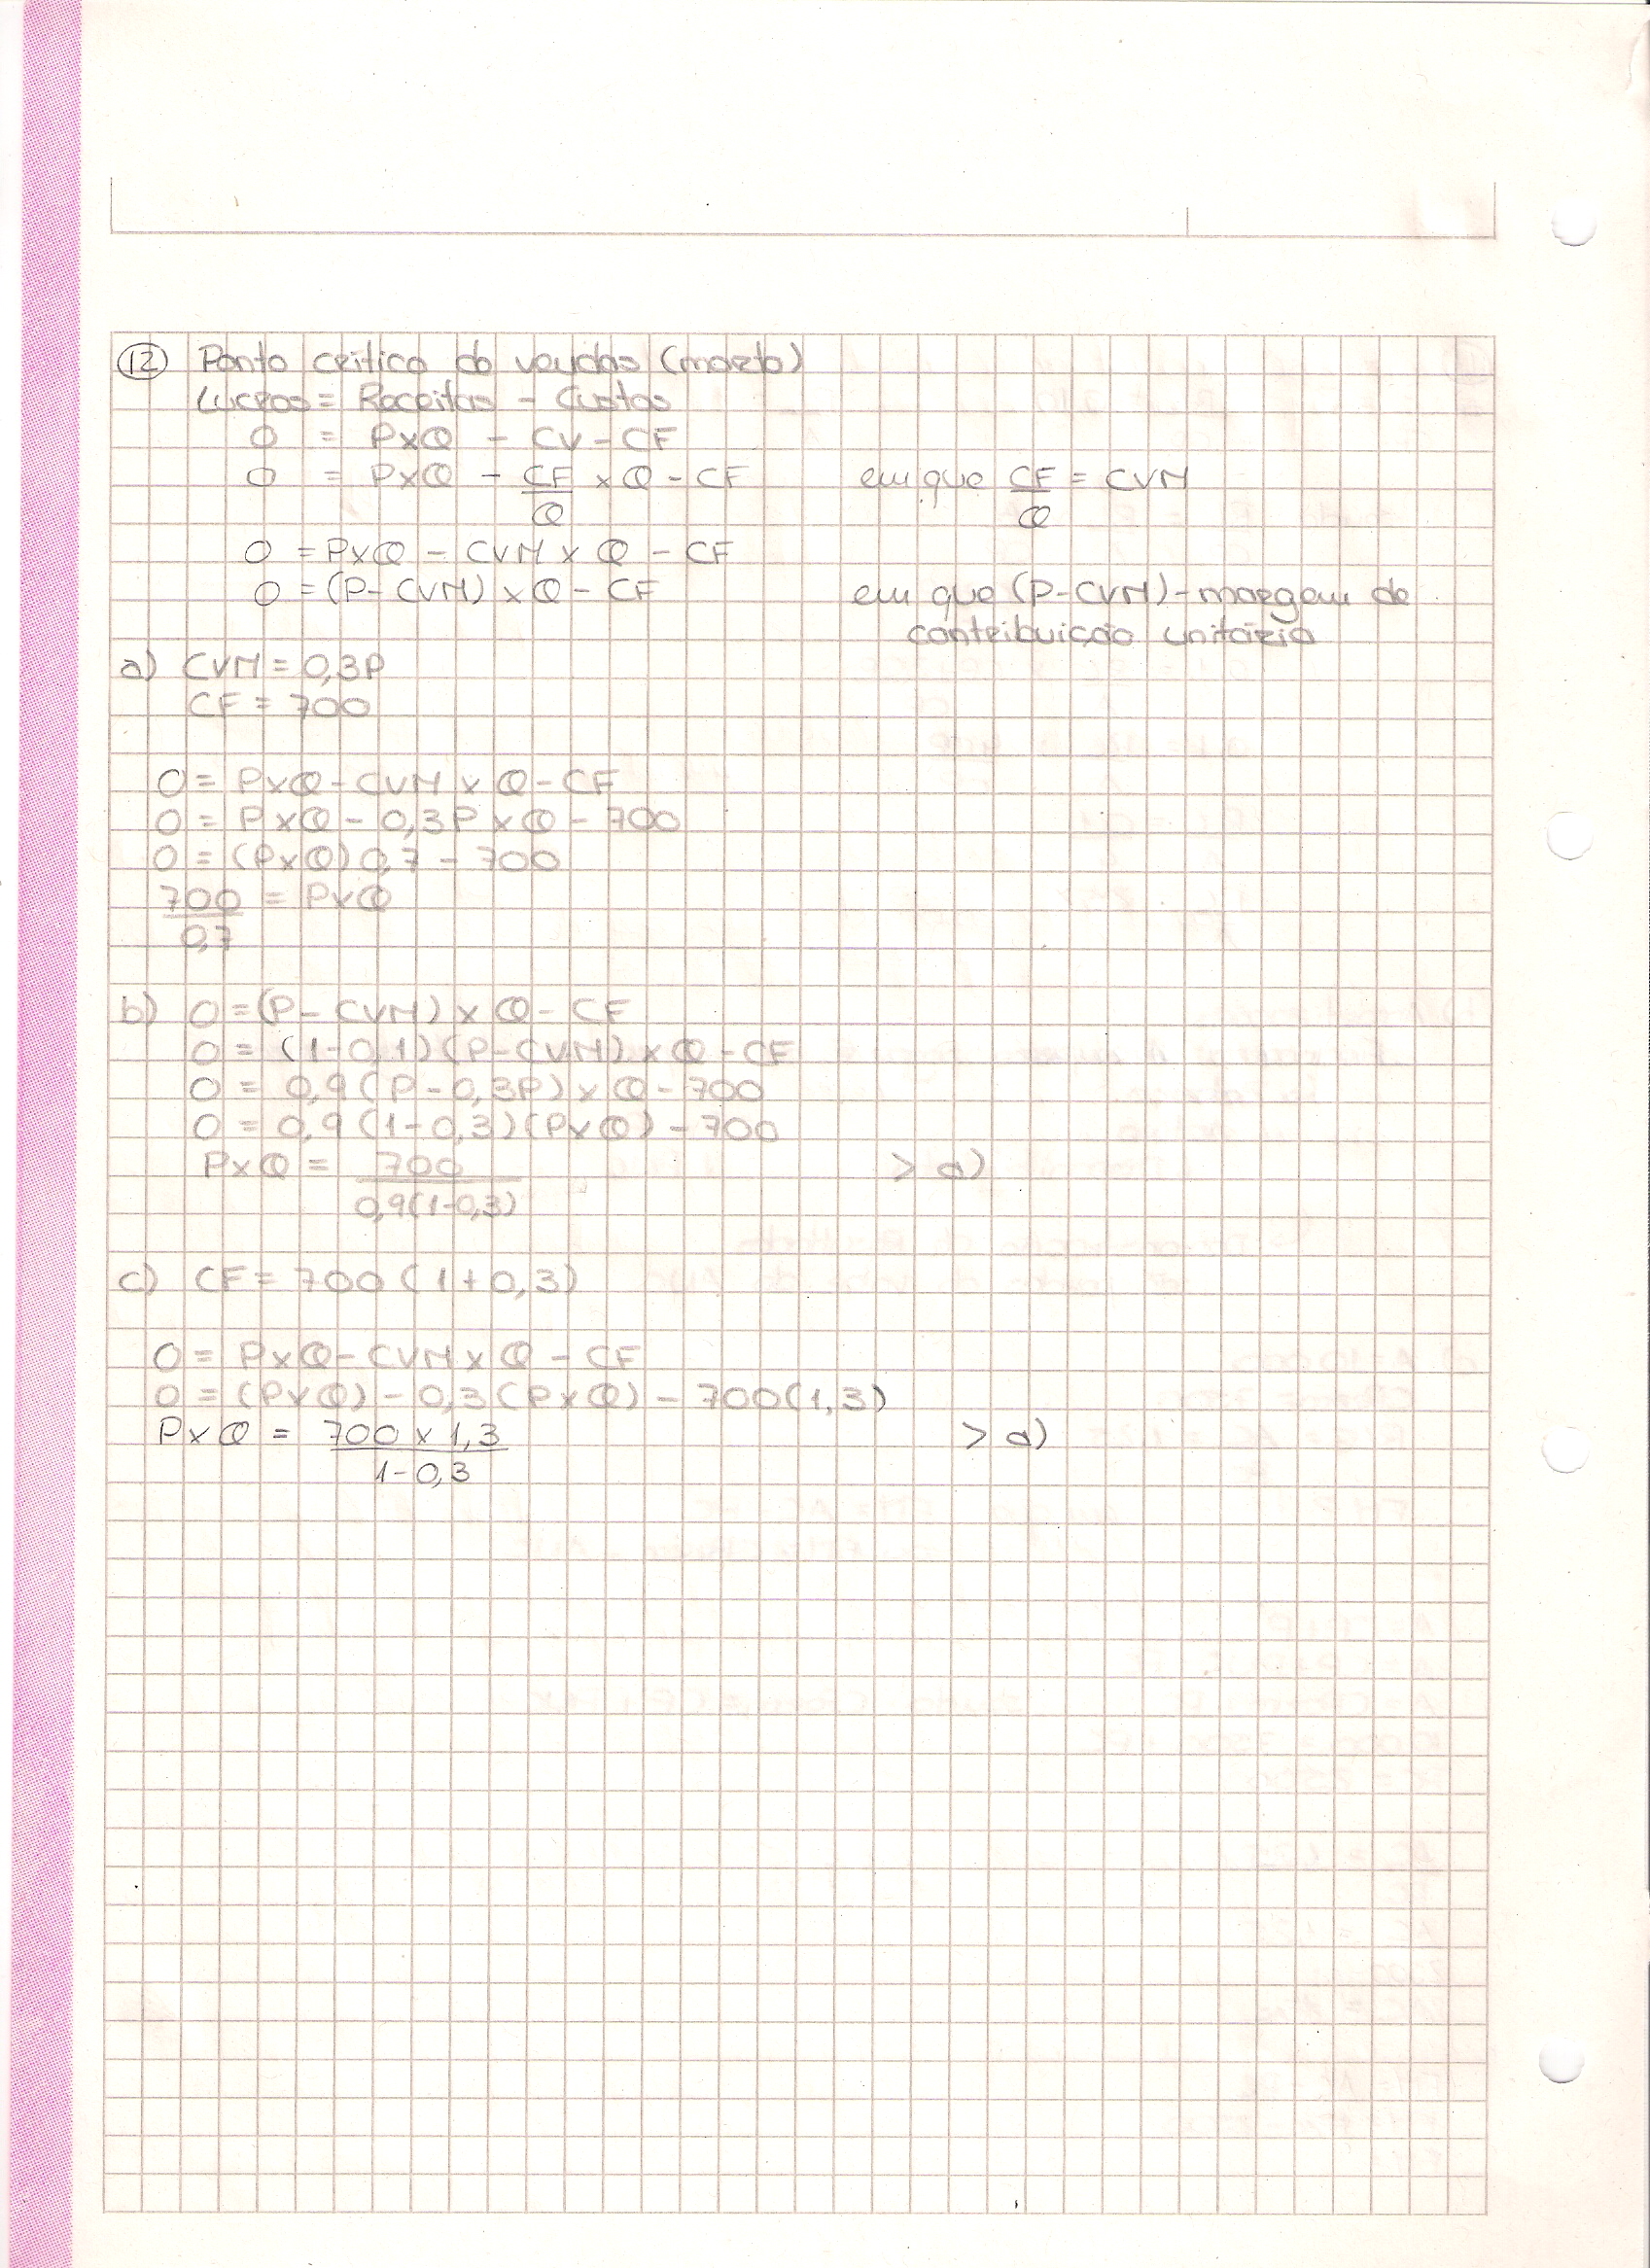 12 Ponto crítico de vendas (morto)
Lucros = Receitas - Custos
0 = P×Q - CV - CF
0 = P×Q - CF/Q ×Q - CF em que CF/Q = CVM
0 = P×Q - CVM × Q - CF
0 = (P - CVM) × Q - CF em que (P-CVM) - margem de
contribuição unitária
a) CVM = 0,3P
CF = 700
0 = P×Q - CVM × Q - CF
0 = P×Q - 0,3P × Q - 700
0 = (P×Q) 0,7 - 700
700/0,7 = P×Q
b) 0 = (P - CVM) × Q - CF
0 = (1-0,1) (P-CVM) × Q - CF
0 = 0,9 (P - 0,3P) × Q - 700
0 = 0,9 (1-0,3) (P×Q) - 700
P×Q = 700/0,9(1-0,3) > a)
c) CF = 700 (1+0,3)
0 = P×Q - CVM × Q - CF
0 = (P×Q) - 0,3 (P×Q) - 700 (1,3)
P×Q = 700 × 1,3/1-0,3 > a)